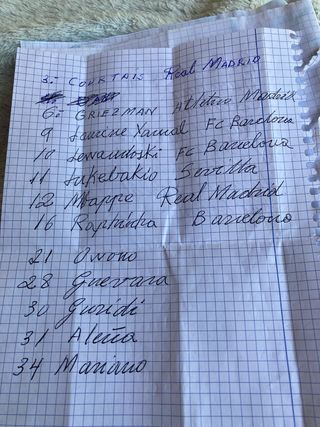 3.- COURTAIS Real MADRID
6.- GRIEZMAN Atletico Madrid
9 Lamine Yamal FC Barcelona
10 Lewandoski FC Barcelona
11 Lukebakio Sevilla
12 Mbappe Real Madrid
16 Raphinha Barcelona
21 Owono
28 Guevara
30 Guridi
31 Aleña
34 Mariano